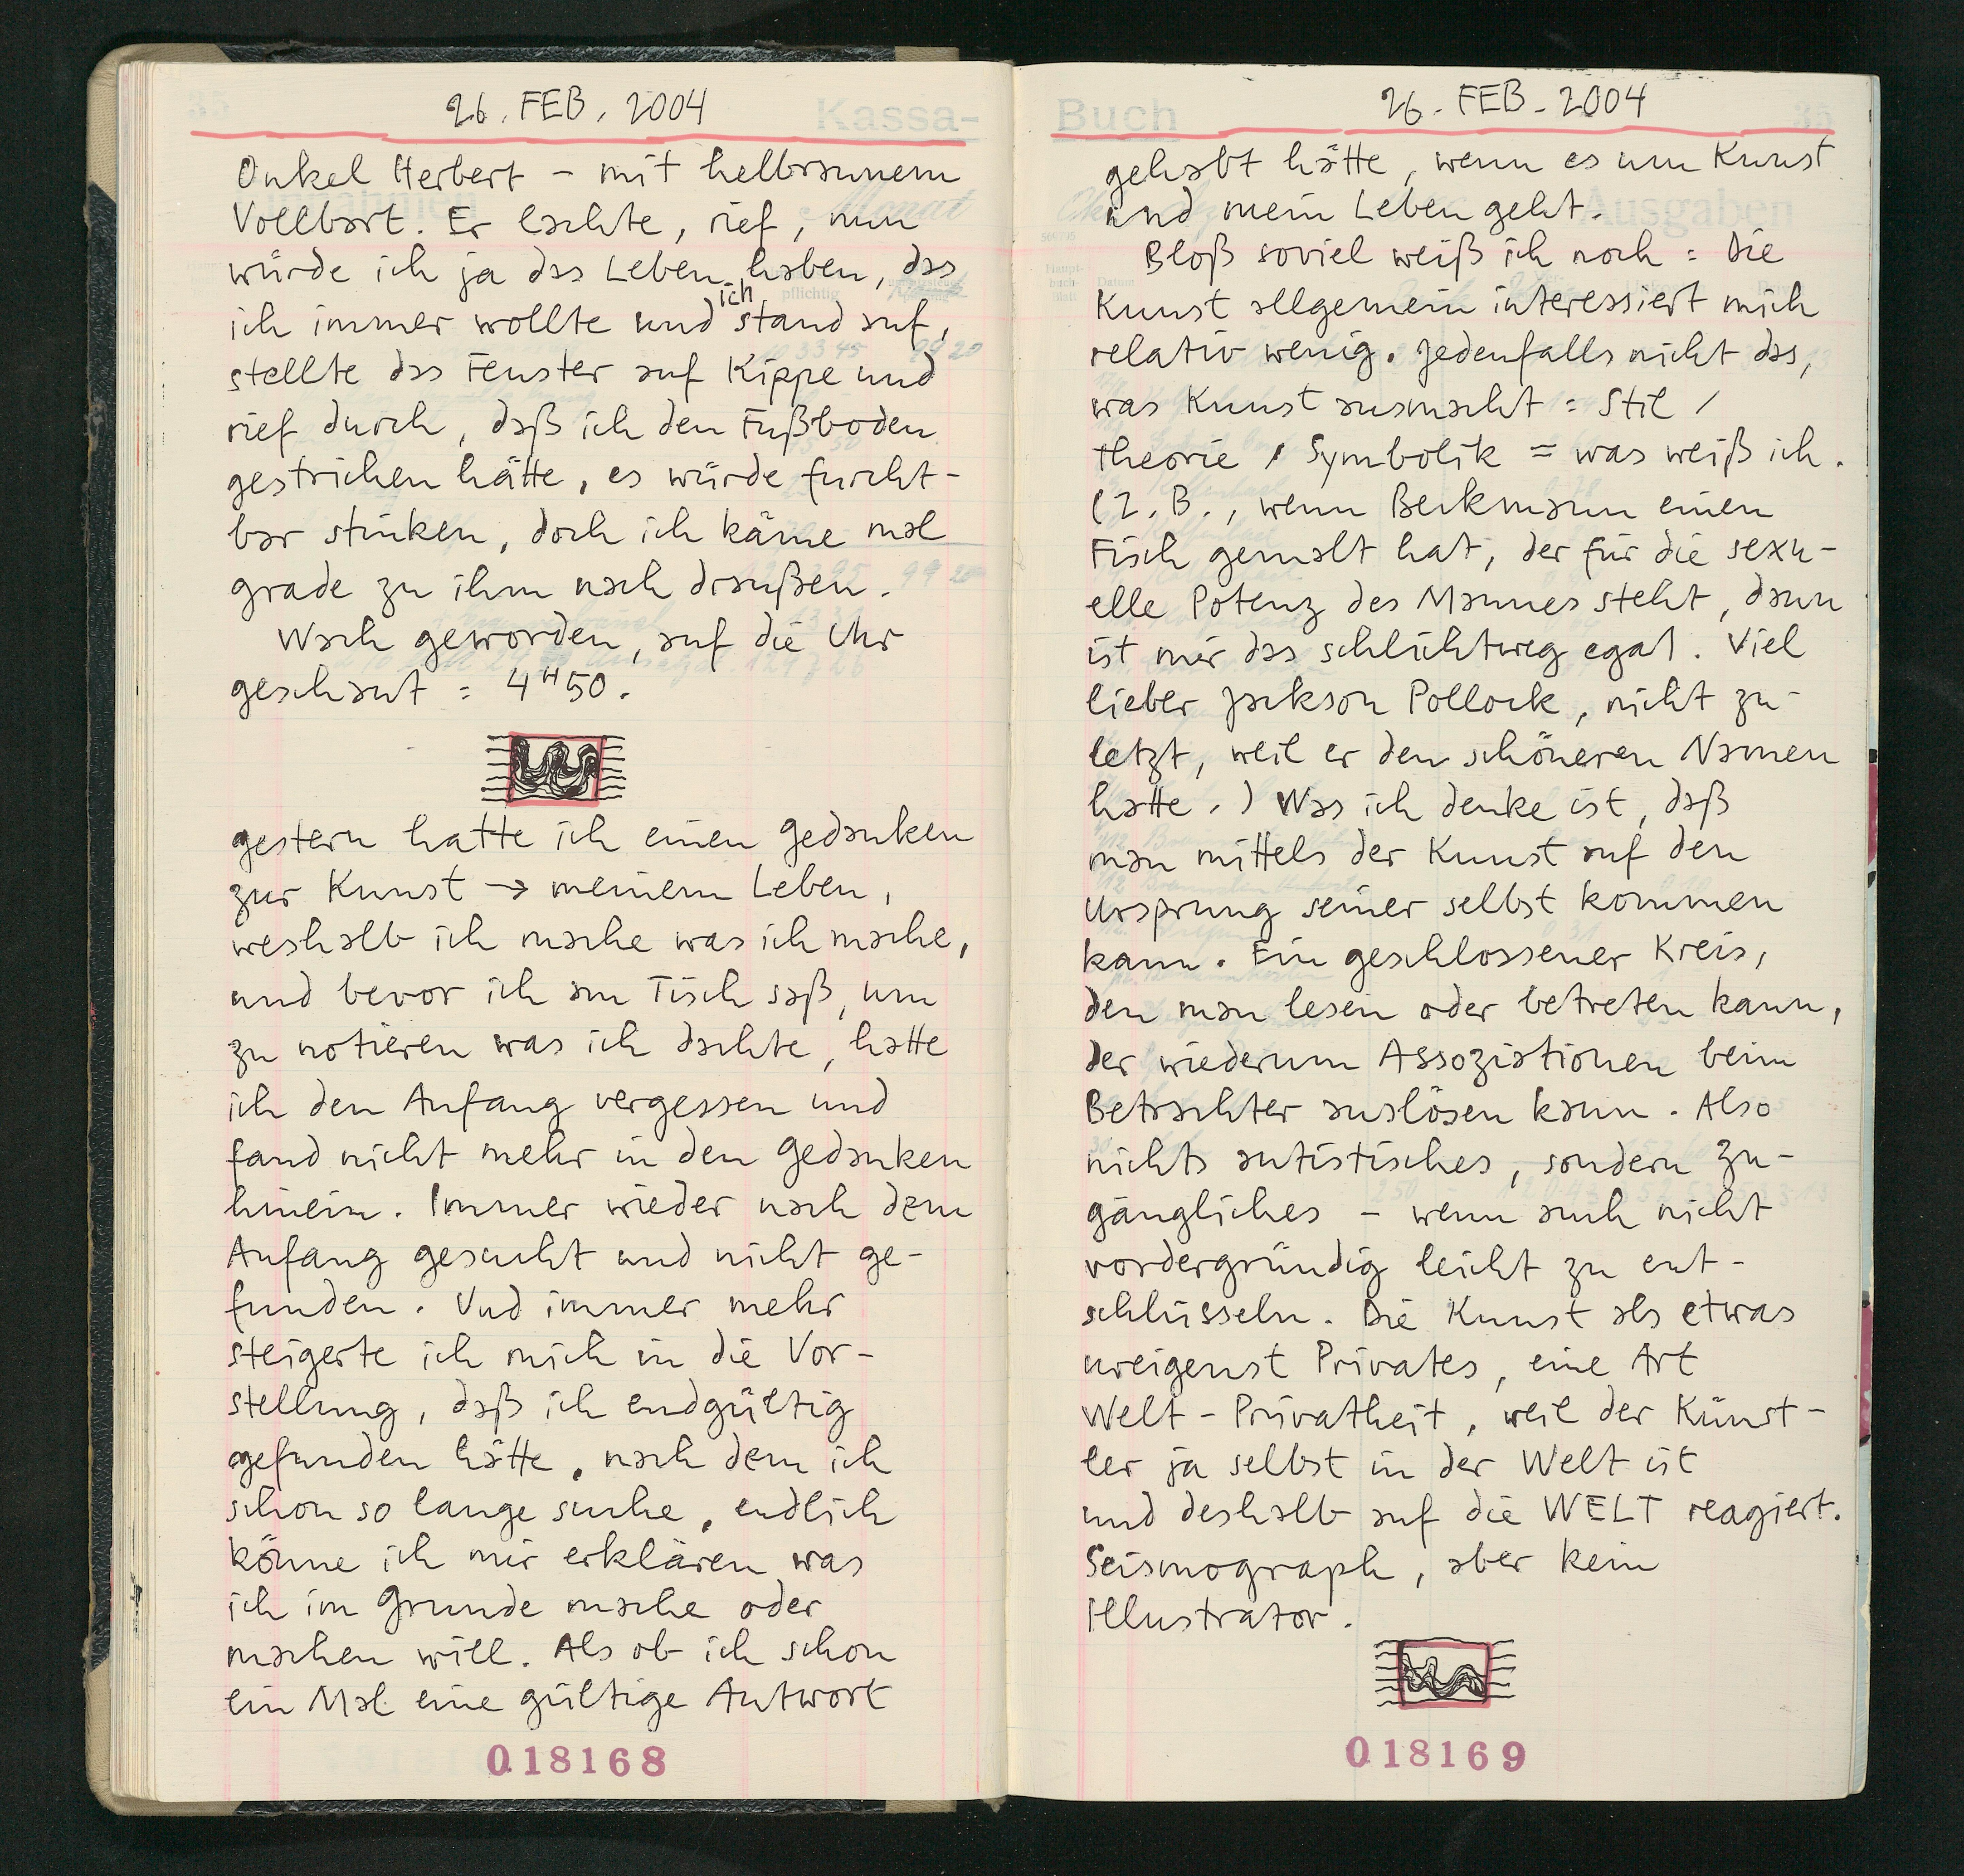 26. FEB. 2004
Kassa-
Onkel Herbert – mit hellbraunem
Vollbart. Er lachte, rief, nun
würde ich ja das Leben haben, das
ich immer wollte und ich stand auf,
stellte das Fenster auf Kippe und
rief durch, daß ich den Fußboden
gestrichen hätte, es würde furcht-
bar stinken, doch ich käme mal
grade zu ihm nach draußen.
Wach geworden, auf die Uhr
geschaut = 4 H 50.
gestern hatte ich einen Gedanken
zur Kunst → meinem Leben,
weshalb ich mache was ich mache,
und bevor ich am Tisch saß, um
zu notieren was ich dachte, hatte
ich den Anfang vergessen und
fand nicht mehr in den Gedanken
hinein. Immer wieder nach dem
Anfang gesucht und nicht ge-
funden. Und immer mehr
steigerte ich mich in die Vor-
stellung, daß ich endgültig
gefunden hätte, nach dem ich
schon so lange suche, endlich
könne ich mir erklären was
ich im Grunde mache oder
machen will. Als ob ich schon
ein Mal eine gültige Antwort
018168
Buch
26. FEB. 2004
35
Ausgaben
gehabt hätte, wenn es um Kunst
und mein Leben geht.
Bloß soviel weiß ich noch = Die
Kunst allgemein interessiert mich
relativ wenig. Jedenfalls nicht das,
was Kunst ausmacht = Stil /
Theorie / Symbolik = was weiß ich.
(Z.B., wenn Beckmann einen
Fisch gemalt hat, der für die sexu-
elle Potenz des Mannes steht, dann
ist mir das schlichtweg egal. Viel
lieber Jackson Pollock, nicht zu-
letzt, weil er den schöneren Namen
hatte.) Was ich denke ist, daß
man mittels der Kunst auf den
Ursprung seiner selbst kommen
kann. Ein geschlossener Kreis,
den man lesen oder betreten kann,
der wiederum Assoziationen beim
Betrachter auslösen kann. Also
nichts autistisches, sondern zu-
gängliches – wenn auch nicht
vordergründig leicht zu ent-
schlüsseln. Die Kunst als etwas
ureigenst Privates, eine Art
Welt-Privatheit, weil der Künst-
ler ja selbst in der Welt ist
und deshalb auf die WELT reagiert.
Seismograph, aber kein
Illustrator.
018169